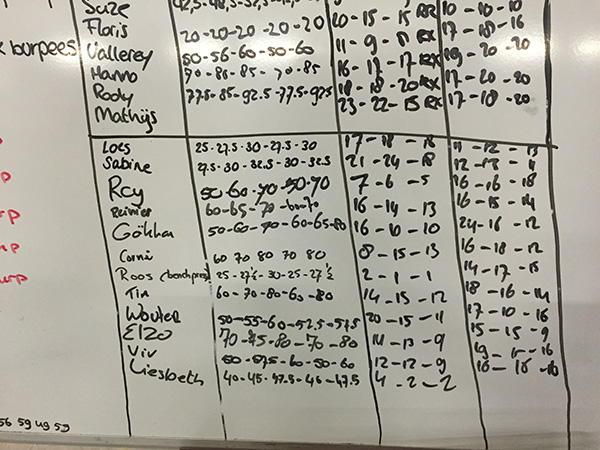 Suze
Floris 20-20-20-20-20 20-15-15 RX 10-10-10
burpees Vallerey 50-56-60-50-60 11-9-8 RX 17-18-16
Hanno 70-85-85-70-85 16-17-17 RX 19-20-20
Rody 77.5-85-92.5-77.5-92.5 18-18-20 RX 17-20-20
Mathijs 23-22-15 RX 17-18-20
Loes 25-27.5-30-27.5-30 17-18-18 11-12-13
Sabine 27.5-30-32.5-30-32.5 21-24-18 12-13-11
Roy 50-60-70-50-70 7-6-5 16-16-18
Reinier 60-65-70-60-70 16-14-13 16-15-14
Gökhan 50-60-70-60-65-80 16-10-10 24-16-12
Corné 60 70 80 70 80 8-15-13 16-18-12
Roos (benchpress) 25-27½-30-25-27½ 2-1-1 14-17-15
Tim 60-70-80-60-80 14-15-12 18-16-14
Wouter 50-55-60-52.5-57.5 20-15-11 17-10-16
Elzo 70-75-80-70-80 14-13-9 15-15-9
Viv 50-57.5-60-50-60 12-12-9
Liesbeth 40-45-47.5-40-47.5 4-2-2 16-16-16
56 59 49 59